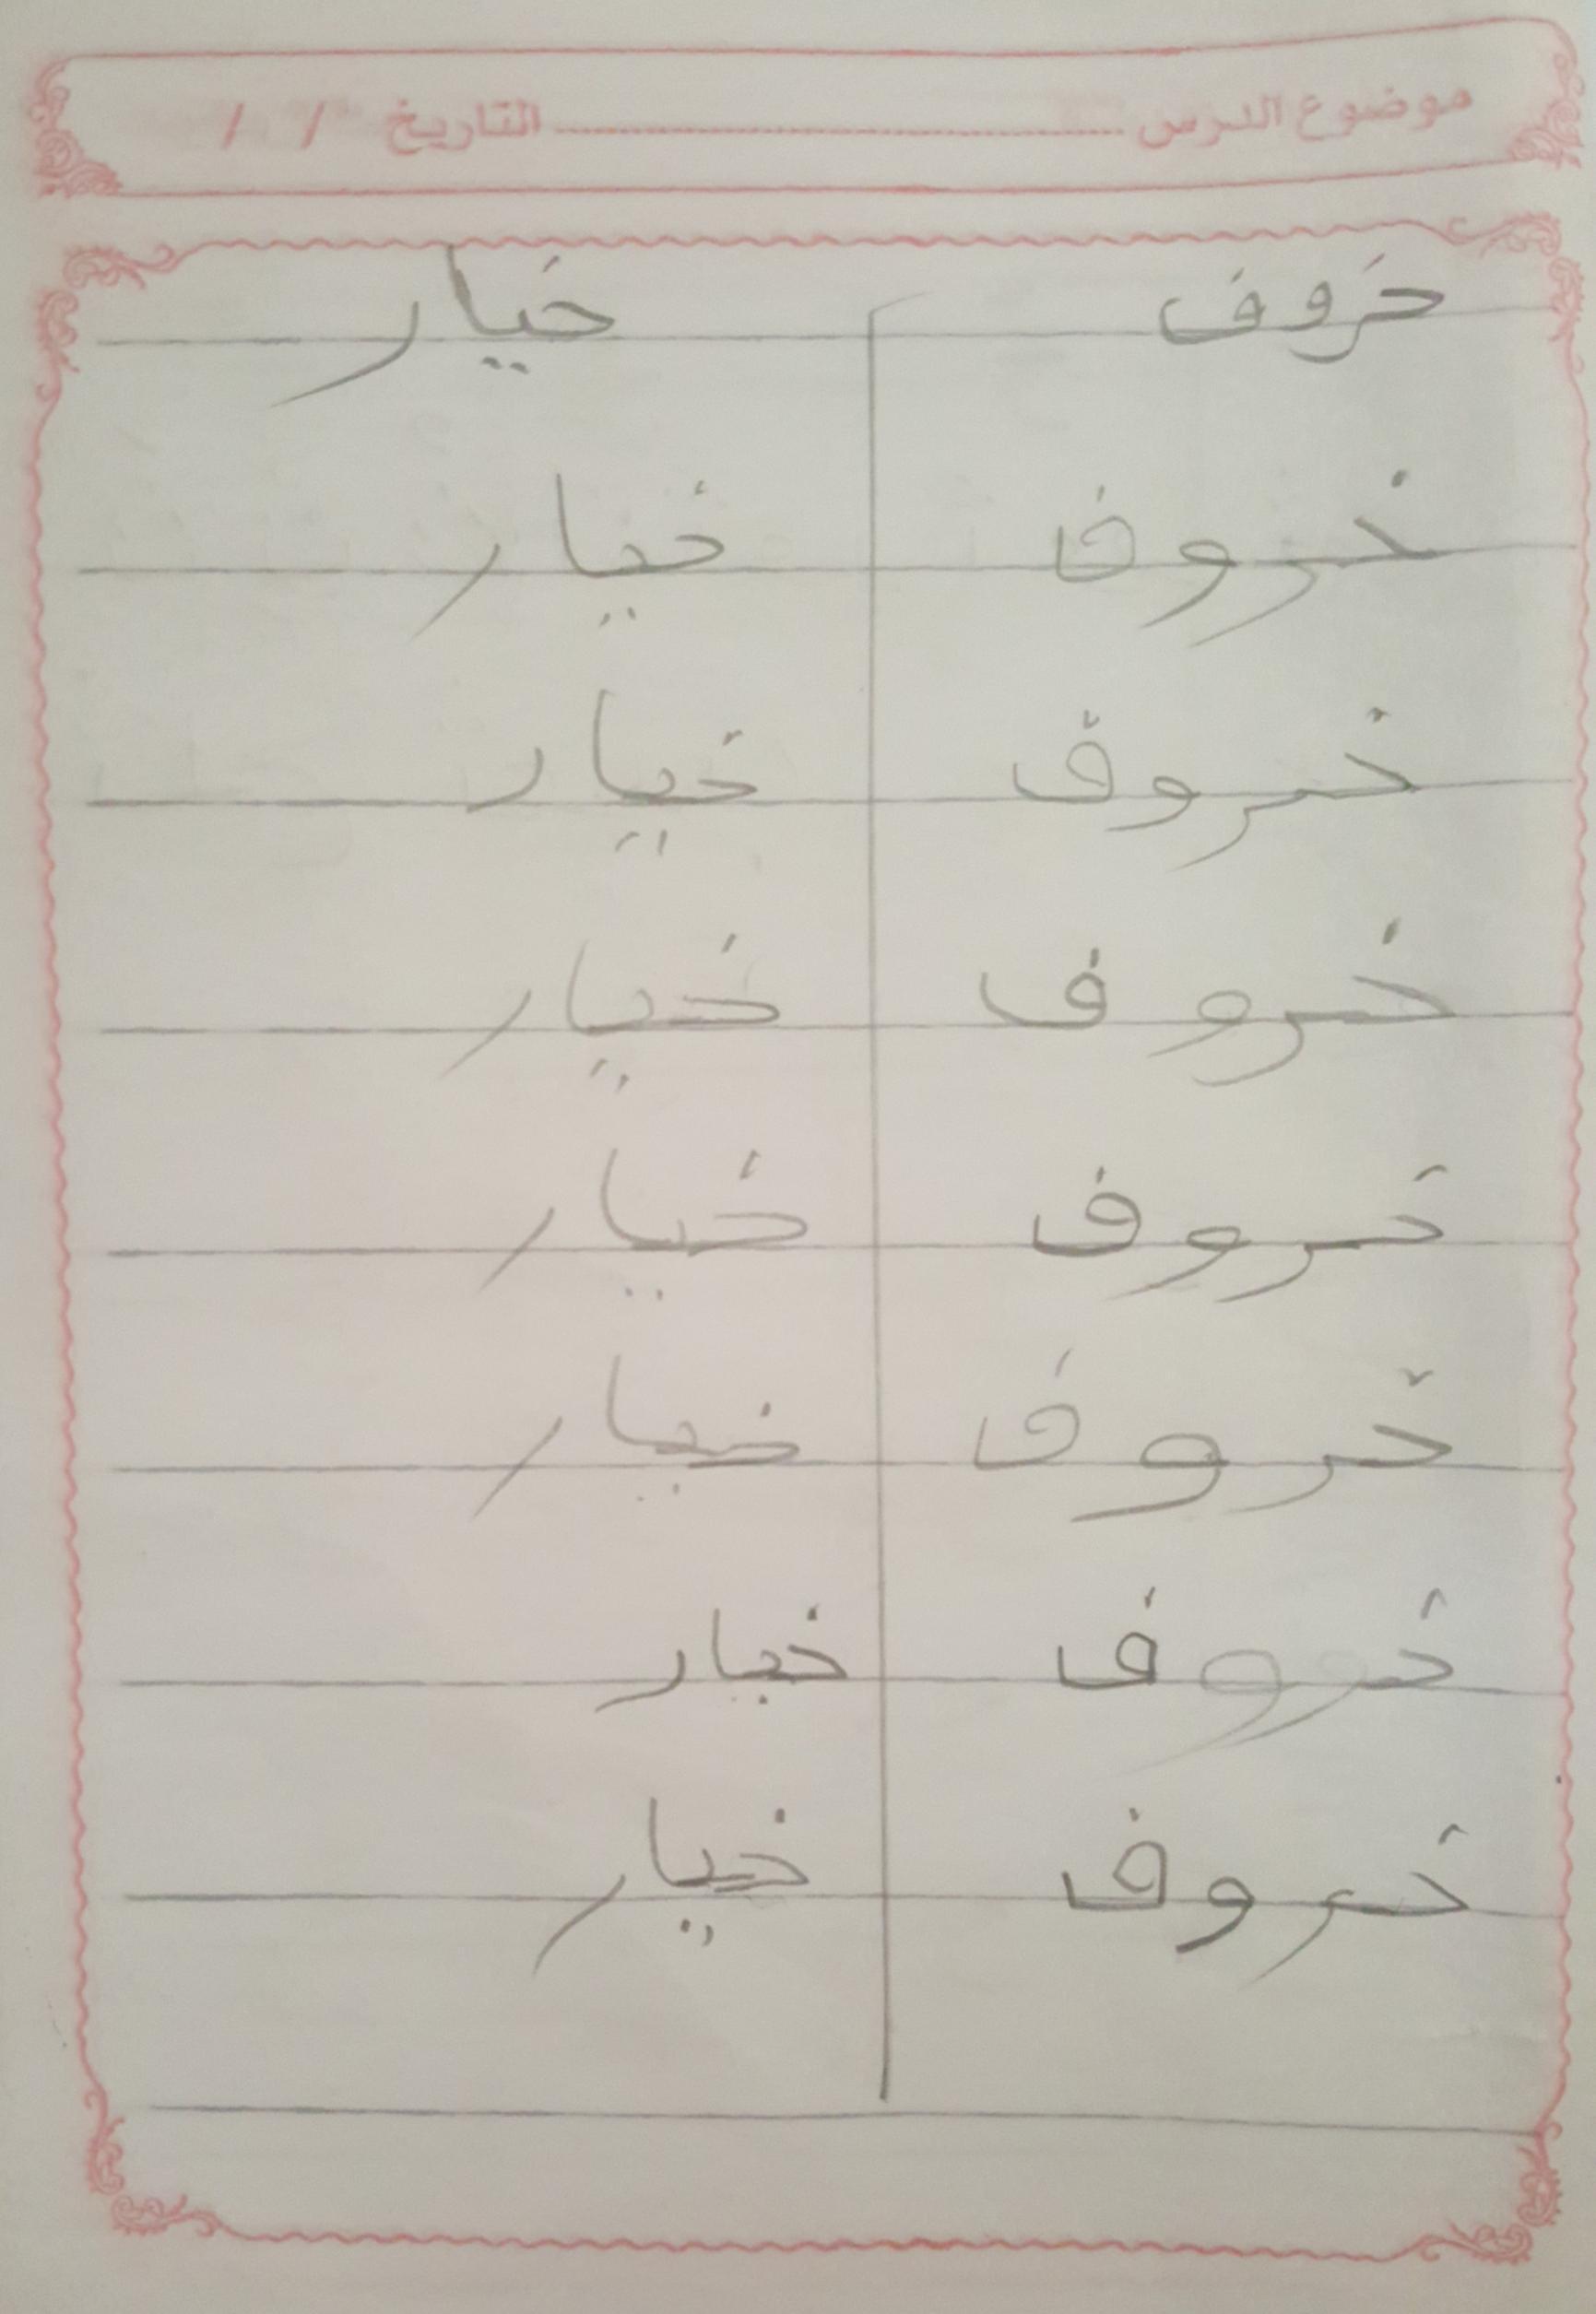 موضوع الدرس التاريخ / /
خروف خيار
خروف خيار
خروف خيار
خروف خيار
خروف خيار
خروف خيار
خروف خيار
خروف خيار